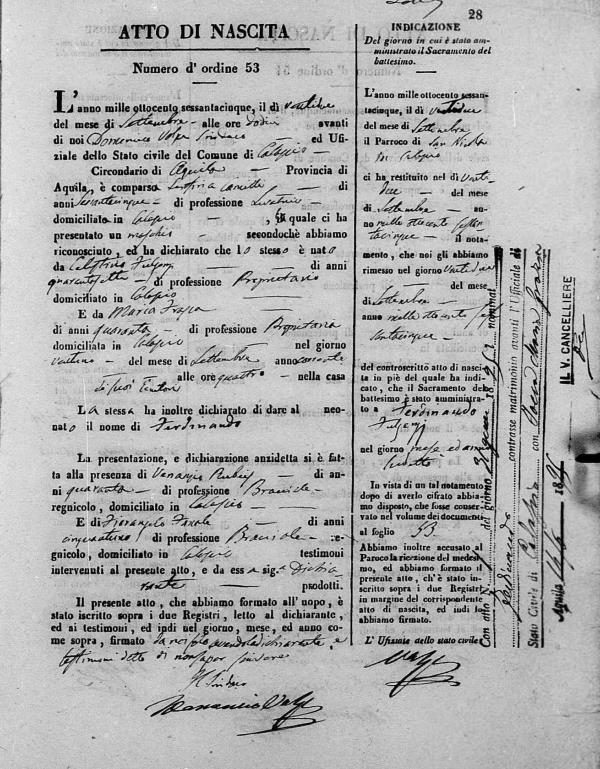 28
ATTO DI NASCITA
Numero d' ordine 53
L'anno mille ottocento sessantacinque, il dì ventidue
del mese di Settembre alle ore dodici avanti
di noi Domenico Volpe Sindaco ed Ufi-
ziale dello Stato civile del Comune di Calascio
Circondario di Aquila Provincia di
Aquila, è comparsa di
anni sessantacinque di professione Levatrice
domiciliata in Calascio quale ci ha
presentato un maschio secondochè abbiamo
riconosciuto, ed ha dichiarato che lo stesso è nato
da Celestino Fulgenzi di anni
quarantasette di professione Proprietario
domiciliato in Calascio
E da Maria Frasca
di anni quaranta di professione Proprietaria
domiciliata in Calascio nel giorno
ventuno del mese di Settembre anno corrente
alle ore quattro nella casa
di suoi Genitori
La stessa ha inoltre dichiarato di dare al neo-
nato il nome di Ferdinando
La presentazione, e dichiarazione anzidetta si è fat-
ta alla presenza di Venanzio di an-
ni quaranta di professione Bracciale
regnicolo, domiciliato in Calascio
E di Fiorangelo di anni
cinquantuno di professione Bracciale re-
gnicolo, domiciliato in Calascio testimoni
intervenuti al presente atto, e da essa sig.a Dichia-
rante prodotti.
Il presente atto, che abbiamo formato all'uopo, è
stato iscritto sopra i due Registri, letto al dichiarante,
ed ai testimoni, ed indi nel giorno, mese, ed anno
come sopra, firmato da noi solo avendo la dichiarante, e
testimoni detto di non saper scrivere
Il Sindaco
INDICAZIONE
Del giorno in cui è stato am-
ministrato il Sacramento del
battesimo.
L'anno mille ottocento sessan-
tacinque, il dì ventidue
del mese di Settembre
il Parroco di San Nicola
in Calascio
ci ha restituito nel dì venti-
due del mese
di Settembre an-
no mille ottocento sessan-
tacinque il nota-
mento, che noi gli abbiamo
rimesso nel giorno ventidue
del mese
di Settembre
anno mille ottocento ses-
santacinque
del controscritto atto di nasci-
ta in piè del quale ha indi-
cato, che il Sacramento del
battesimo è stato amministra-
to a Ferdinando
Fulgenzi
nel giorno mese ed anno
suddetto
In vista di un tal notamento
dopo di averlo cifrato abbia-
mo disposto, che fosse conser-
vato nel volume dei documenti
al foglio 53.
Abbiamo inoltre accusato al
Paroco la ricezione del medesi-
mo, ed abbiamo formato il
presente atto, ch'è stato in-
scritto sopra i due Registri
in margine del corrispondente
atto di nascita, ed indi lo
abbiamo firmato.
L' Ufiziale dello stato civile
Con atto N. del giorno
Ferdinando
contrasse matrimonio avanti l'Ufficiale di
Stato Civile di Calascio con
Aquila
IL V. CANCELLIERE